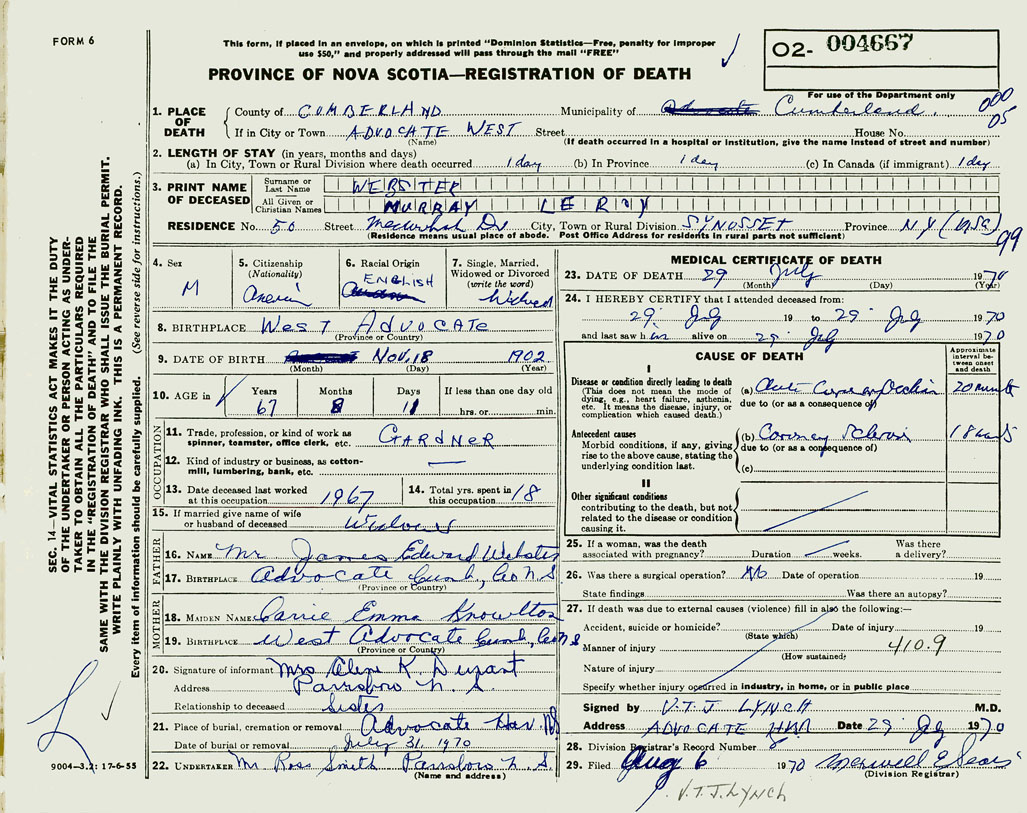 FORM 6
This form, if placed in an envelope, on which is printed "Dominion Statistics—Free, penalty for improper
use $50," and properly addressed will pass through the mail "FREE"
PROVINCE OF NOVA SCOTIA—REGISTRATION OF DEATH
02- 004667
For use of the Department only
000
05
1. PLACE OF DEATH
County of CUMBERLAND Municipality of Cumberland.
If in City or Town ADVOCATE WEST Street House No.
(Name) (If death occurred in a hospital or institution, give the name instead of street and number)
2. LENGTH OF STAY (in years, months and days)
(a) In City, Town or Rural Division where death occurred 1 day (b) In Province 1 day (c) In Canada (if immigrant) 1 day
3. PRINT NAME OF DECEASED
Surname or Last Name WEBSTER
All Given or Christian Names MURRAY LEROY
RESIDENCE No. 50 Street Dr City, Town or Rural Division SYNOSSET Province NY (USA)
(Residence means usual place of abode. Post Office Address for residents in rural parts not sufficient)
99
4. Sex M
5. Citizenship (Nationality)
6. Racial Origin ENGLISH
7. Single, Married, Widowed or Divorced (write the word) Widowed
8. BIRTHPLACE West Advocate
(Province or Country)
9. DATE OF BIRTH Nov. 18 1902
(Month) (Day) (Year)
10. AGE in Years 67 Months 8 Days 11 If less than one day old hrs. or min.
OCCUPATION
11. Trade, profession, or kind of work as spinner, teamster, office clerk, etc. GARDNER
12. Kind of industry or business, as cotton-mill, lumbering, bank, etc. —
13. Date deceased last worked at this occupation 1967
14. Total yrs. spent in this occupation 18
15. If married give name of wife or husband of deceased
FATHER
16. NAME Mr James Edward Webster
17. BIRTHPLACE Advocate Cumb, Co N S
(Province or Country)
MOTHER
18. MAIDEN NAME Carrie Emma Knowlton
19. BIRTHPLACE West Advocate Cumb, Co N S
(Province or Country)
20. Signature of informant Mrs K Durant
Address Parrsboro N. S.
Relationship to deceased Sister
21. Place of burial, cremation or removal Advocate Har NS
Date of burial or removal July 31, 1970
22. UNDERTAKER Mr Ross Smith Parrsboro N. S.
(Name and address)
MEDICAL CERTIFICATE OF DEATH
23. DATE OF DEATH 29 July 1970
(Month) (Day) (Year)
24. I HEREBY CERTIFY that I attended deceased from:
29 July 19 to 29 July 1970
and last saw him alive on 29 July 1970
CAUSE OF DEATH
Approximate interval between onset and death
I
Disease or condition directly leading to death
(This does not mean the mode of dying, e.g., heart failure, asthenia, etc. It means the disease, injury, or complication which caused death.)
(a) 20 minutes
due to (or as a consequence of)
Antecedent causes
Morbid conditions, if any, giving rise to the above cause, stating the underlying condition last.
(b) Coronary
due to (or as a consequence of)
(c)
II
Other significant conditions
contributing to the death, but not related to the disease or condition causing it.
25. If a woman, was the death associated with pregnancy? Duration weeks. Was there a delivery?
26. Was there a surgical operation? No Date of operation 19
State findings Was there an autopsy?
27. If death was due to external causes (violence) fill in also the following:—
Accident, suicide or homicide? Date of injury 19
(State which)
Manner of injury 410.9
(How sustained)
Nature of injury
Specify whether injury occurred in industry, in home, or in public place
Signed by V.T.J LYNCH M.D.
Address ADVOCATE HBR Date 29 July 1970
28. Division Registrar's Record Number
29. Filed Aug 6 1970 Merwill E Sears
(Division Registrar)
V.T.J. LYNCH
9004—3.2: 17-6-55
SEC. 14—VITAL STATISTICS ACT MAKES IT THE DUTY
OF THE UNDERTAKER OR PERSON ACTING AS UNDER-
TAKER TO OBTAIN ALL THE PARTICULARS REQUIRED
IN THE "REGISTRATION OF DEATH" AND TO FILE THE
SAME WITH THE DIVISION REGISTRAR WHO SHALL ISSUE THE BURIAL PERMIT.
WRITE PLAINLY WITH UNFADING INK. THIS IS A PERMANENT RECORD.
Every item of information should be carefully supplied. (See reverse side for instructions.)